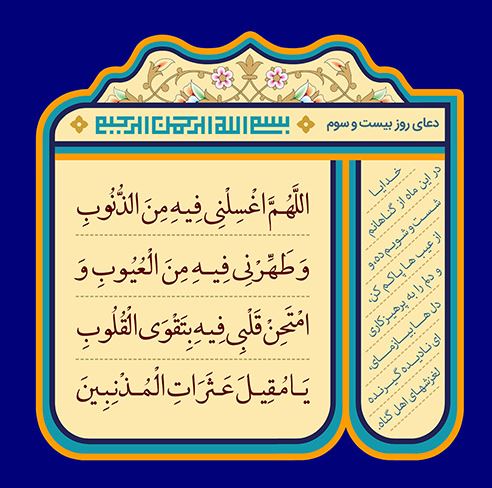 دعای روز بیست و سوم
بسم الله الرحمن الرحیم
اللَّهُمَّ اغْسِلْنِی فِیهِ مِنَ الذُّنُوبِ
وَ طَهِّرْنِی فِیهِ مِنَ الْعُیُوبِ وَ
امْتَحِنْ قَلْبِی فِیهِ بِتَقْوَی الْقُلُوبِ
یَا مُقِیلَ عَثَرَاتِ الْمُذْنِبِینَ
خدایا
در این ماه از گناهانم
شست و شویم ده، و
از عیب ها پاکم کن
و دلم را به پرهیزکاری
دل ها بیازمای،
ای نادیده گیرنده
لغزشهای اهل گناه.